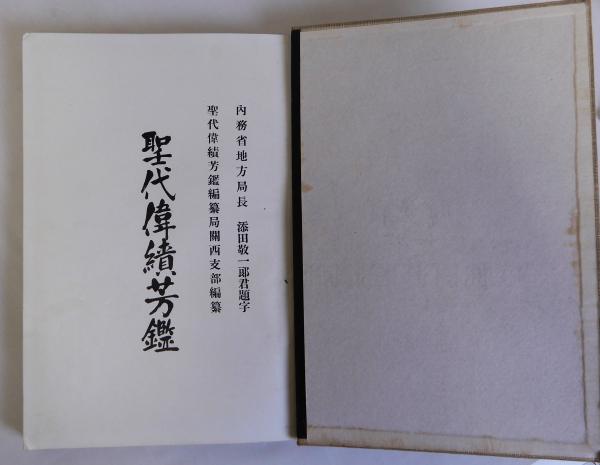 內務省地方局長 添田敬一郞君題字
聖代偉績芳鑑編纂局關西支部編纂
聖代偉績芳鑑